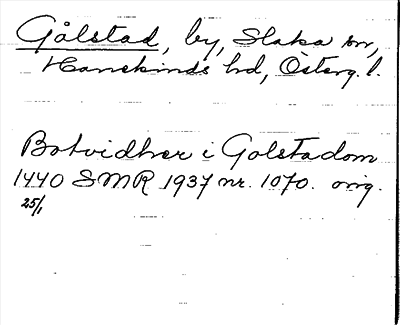 Gålstad, by, Slaka sn,
Hanekinds hd, Österg. l.
Botvidher i Golstadom
1440 SMR 1937 nr. 1070. orig.
25/1